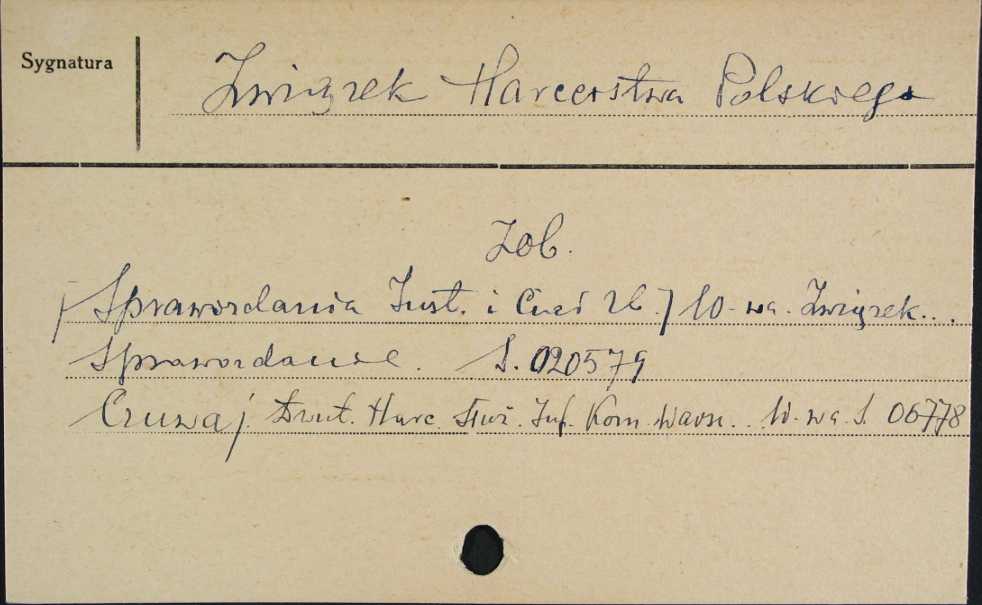 Sygnatura
Związek Harcerstwa Polskiego
Zob.
[Sprawozdania Inst. i] W-wa. Związek...
Sprawozdanie. S. 020579
Czuwaj. Harc. Służ. Inf. Kom. W-wa. S. 06778